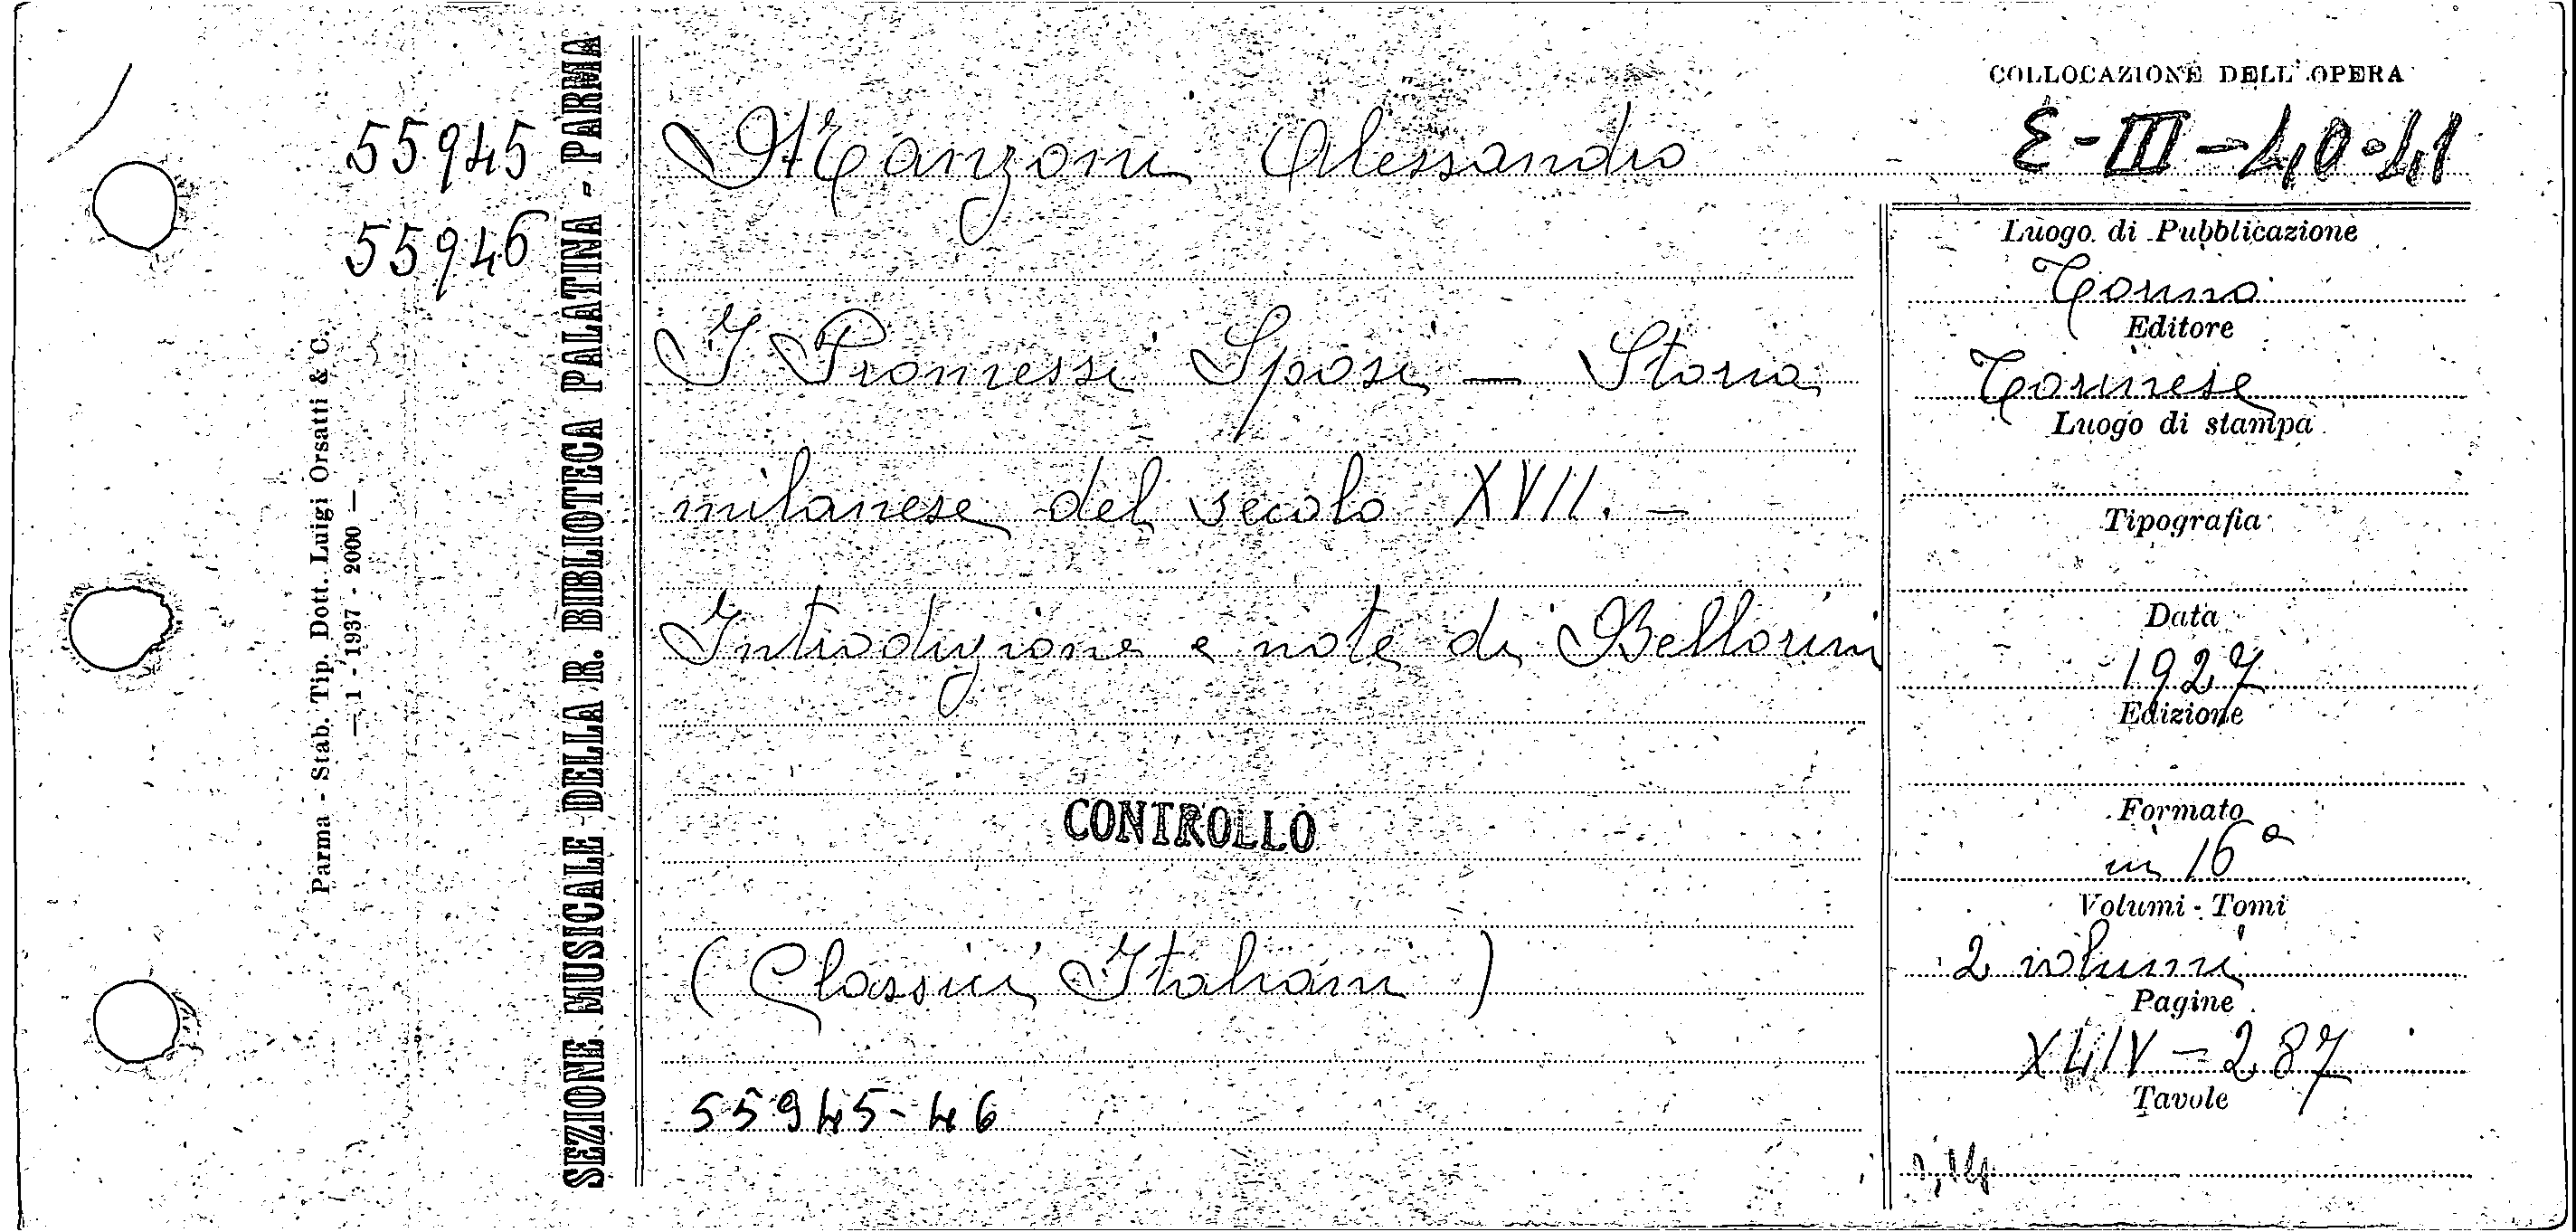 55945
55946
Parma - Stab. Tip. Dott. Luigi Orsatti & C.
— 1 - 1937 - 2000 —
SEZIONE MUSICALE DELLA R. BIBLIOTECA PALATINA - PARMA
Manzoni Alessandro
I Promessi Sposi — Storia
milanese del secolo XVII. —
Introduzione e note di Bellorini
CONTROLLO
(Classici Italiani)
55945-46
COLLOCAZIONE DELL'OPERA
E-III-40-41
Luogo di Pubblicazione
Torino
Editore
Torinese
Luogo di stampa
Tipografia
Data
1927
Edizione
Formato
in 16°
Volumi - Tomi
2 volumi
Pagine
XLIV - 287
Tavole